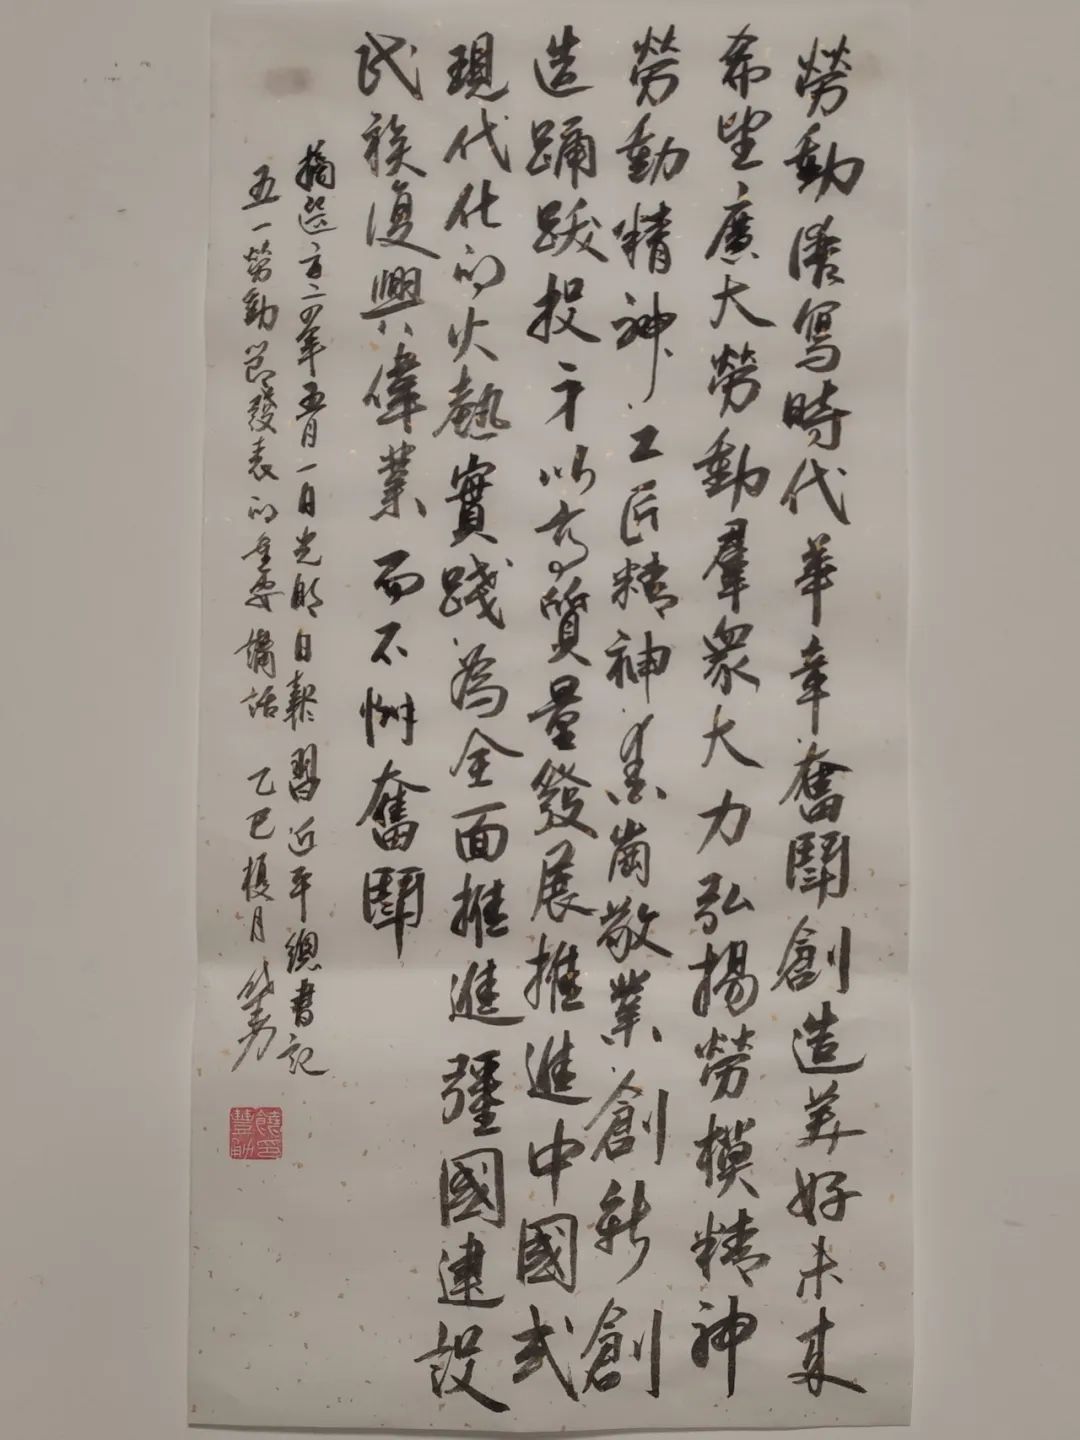 勞動譜寫時代華章奮鬪創造美好未來
希望廣大勞動羣衆大力弘揚勞模精神
勞動精神工匠精神崗敬業創新創
造踴躍投身以高質量發展推進中國式
現代化的火熱實踐為全面推進強國建設
民族復興偉業而不懈奮鬪
摘選二四年五月一日光明日報習近平總書記
五一勞動節發表的重要講話 乙巳榎月